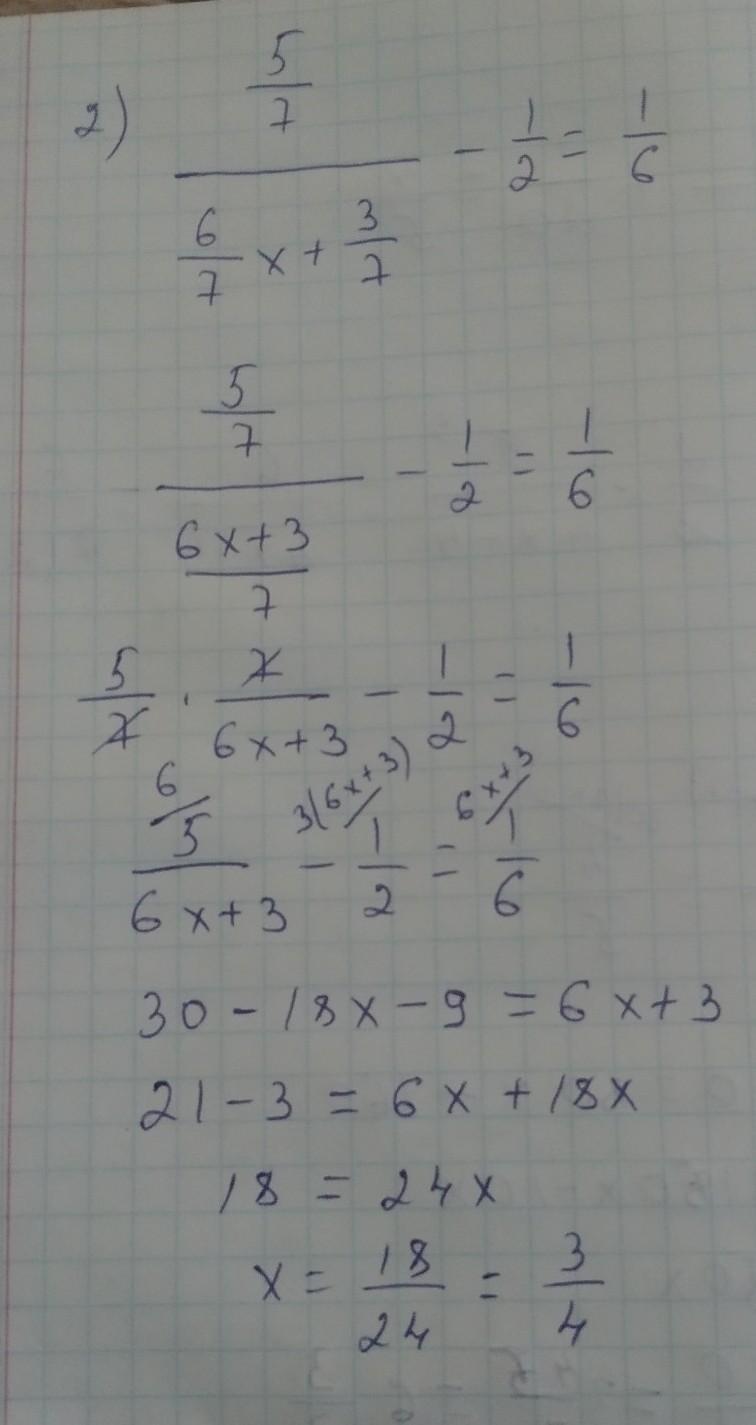 2) \frac{\frac{5}{7}}{\frac{6}{7}x+\frac{3}{7}} - \frac{1}{2} = \frac{1}{6}
\frac{\frac{5}{7}}{\frac{6x+3}{7}} - \frac{1}{2} = \frac{1}{6}
\frac{5}{7} · \frac{7}{6x+3} - \frac{1}{2} = \frac{1}{6}
6/ 3(6x+3)/ 6x+3/
\frac{5}{6x+3} - \frac{1}{2} = \frac{1}{6}
30 - 18x - 9 = 6x + 3
21 - 3 = 6x + 18x
18 = 24x
x = \frac{18}{24} = \frac{3}{4}